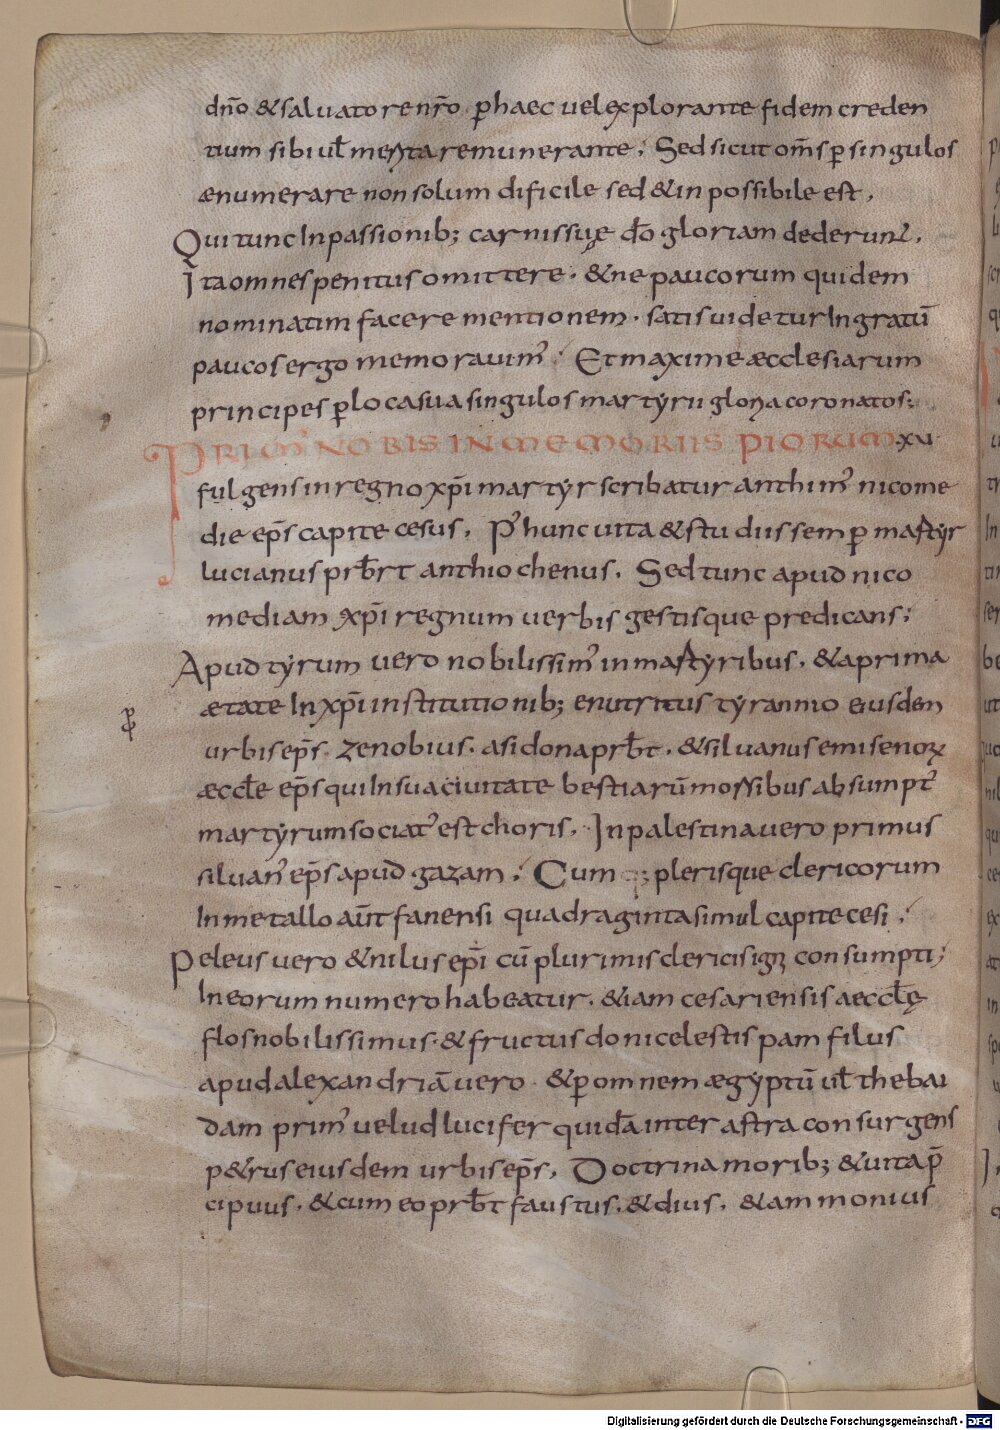 dn̄o & saluatore nr̄o ꝑ haec uel explorante fidem creden
tium sibi ul̄ merita remunerante; Sed sicut om̄s ꝑ singulos
ænumerare non solum dificile sed & inpossibile est,
Qui tunc In passionib; carnis suę dō gloriam dederunt,
Ita omnes penitus omittere · & ne paucorum quidem
nominatim facere mentionem · satis uidetur Ingratū
paucos ergo memorauim'; Et maxime æcclesiarum
principes ꝑ loca sua singulos martyrii gloria coronatos;
PRIM' NOBIS IN MEMORIIS PIORUM · XV ·
fulgens in regno xp̄i martyr scribatur anthim' nicome
die ep̄s capite cesus, P' hunc uita & studiis semꝑ martyr
lucianus prb̄rt anthiochenus, Sed tunc apud nico
mediam xp̄i regnum uerbis gestisque predicans;
Apud tyrum uero nobilissim' in martyribus, & a prima
ætate In xp̄i institutionib; enutritus tyrannio eiusdem
urbis ep̄s. Zenobius. asidona prb̄t, & siluanus emisenoꝝ
æccl̄e ep̄s qui In sua ciuitate bestiarū morsibus absumpt'
martyrum sociat' est choris, In palestina uero primus
siluan' ep̄s apud gazam; Cum plerisque clericorum
In metallo aūt fanensi quadraginta simul capite cesi;
Peleus uero & nilus ep̄i cū plurimis clericis igni consumpti;
In eorum numero habeatur, & iam cesariensis aeccl̄ę
flos nobilissimus · & fructus doni celestis pamfilus
apud alexandriā uero · & ꝑ omnem ægyptū ul̄ thebai
dam prim' uelud lucifer quidā inter astra consurgens
p&rus eiusdem urbis ep̄s, Doctrina morib; & uita p̄
cipuus, & cum eo prb̄t faustus, & dius, & ammonius
Digitalisierung gefördert durch die Deutsche Forschungsgemeinschaft - DFG